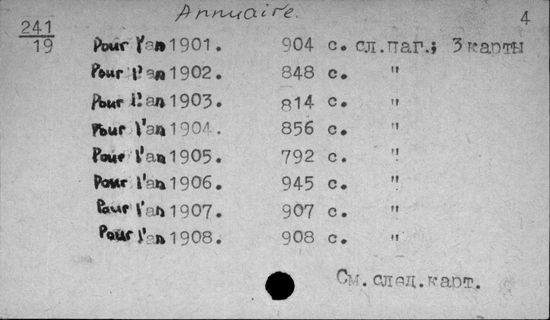 Annuaire.
4
241
19
Pour l'an 1901. 904 с. сл.паг.; 3 карты
Pour l'an 1902. 848 с. "
Pour l'an 1903. 814 с. "
Pour l'an 1904. 856 с. "
Pour l'an 1905. 792 с. "
Pour l'an 1906. 945 с. "
Pour l'an 1907. 907 с. "
Pour l'an 1908. 908 с. "
См.след.карт.